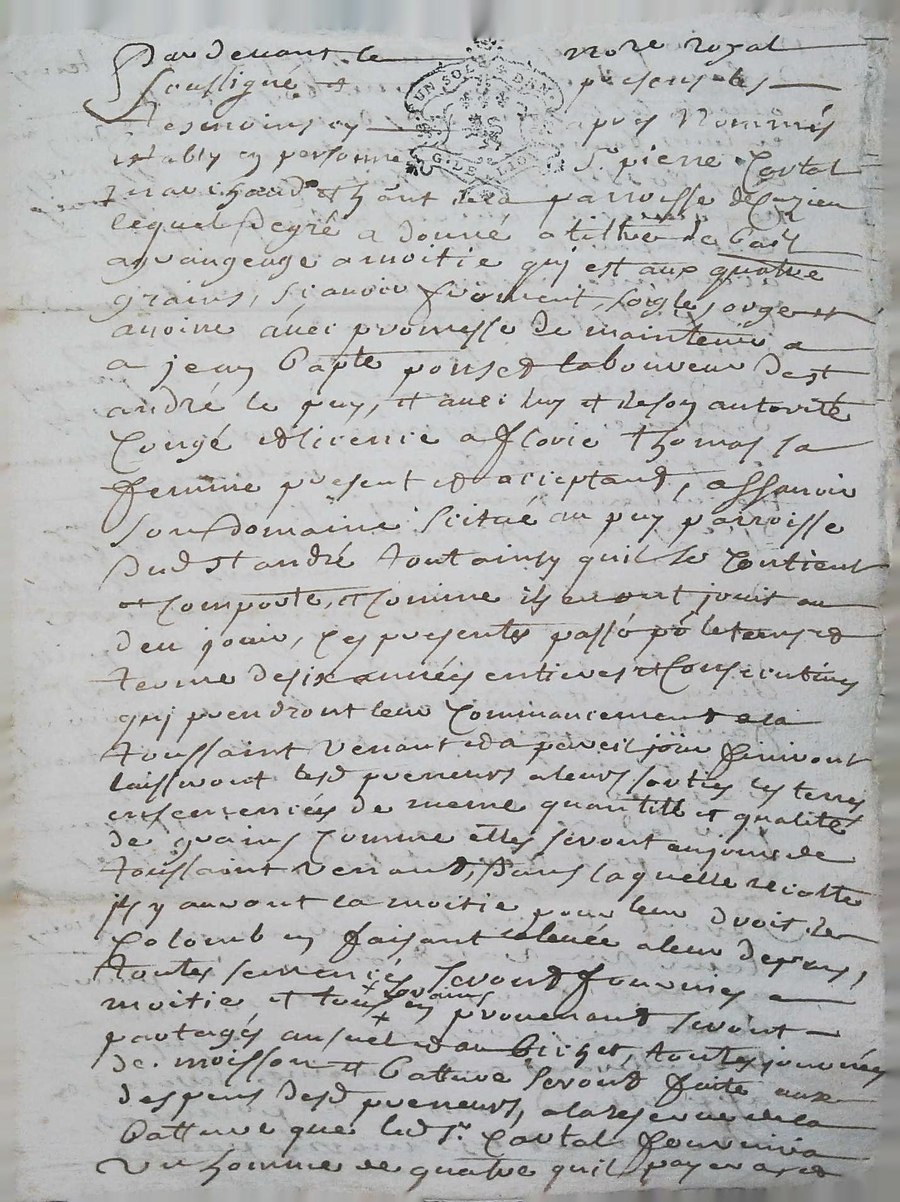 Pardevant le nore royal
soussigne et presens les
tesmoins cy apres nommés
estably en personne Sr pierre Cortal
marchand et hant de la parroisse de
lequel de gré a donné a tiltre de bail
a grangeage a moitie qui est aux quatre
grains, scavoir froment, soigle, orge et
avoine avec promesse de maintenir a
a jean bapte ponset laboureur de st
andré le puy, et avec luy et de son autorité
Congé et licence a florie thomas sa
femme present et acceptant, assavoir
son domaine scitué au puy parroisse
dud st andré tout ainsy quil se Contient
et Comporte, et Comme ils en ont jouit ou
deu jouir, Ces presentes passé po le tems et
terme de six années entieres et Consecutives
quj prendront leur Commancement a la
toussaint venant et a pareil jour finiront
laisseront lesd preneurs a leurs sorties les terres
ensemencées de meme quantitté et qualité
de grains Comme elles seront au jour de
toussaint venant, dans laquelle recolte
ils y auront la moitie pour leur droit de
Colomb en faisant la levée a leur depens,
toutes semences seront fournies a
moitie et tous grains en provenant seront
partagés au et au bichet, toutes journées
de moisson et batture seront faite aux
despens desd preneurs, a la reserve de la
batture que led sr Cortal fournira
un homme de quatre quil payera et